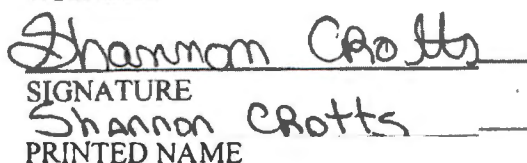 Shannon CRotts
SIGNATURE
Shannon CRotts
PRINTED NAME